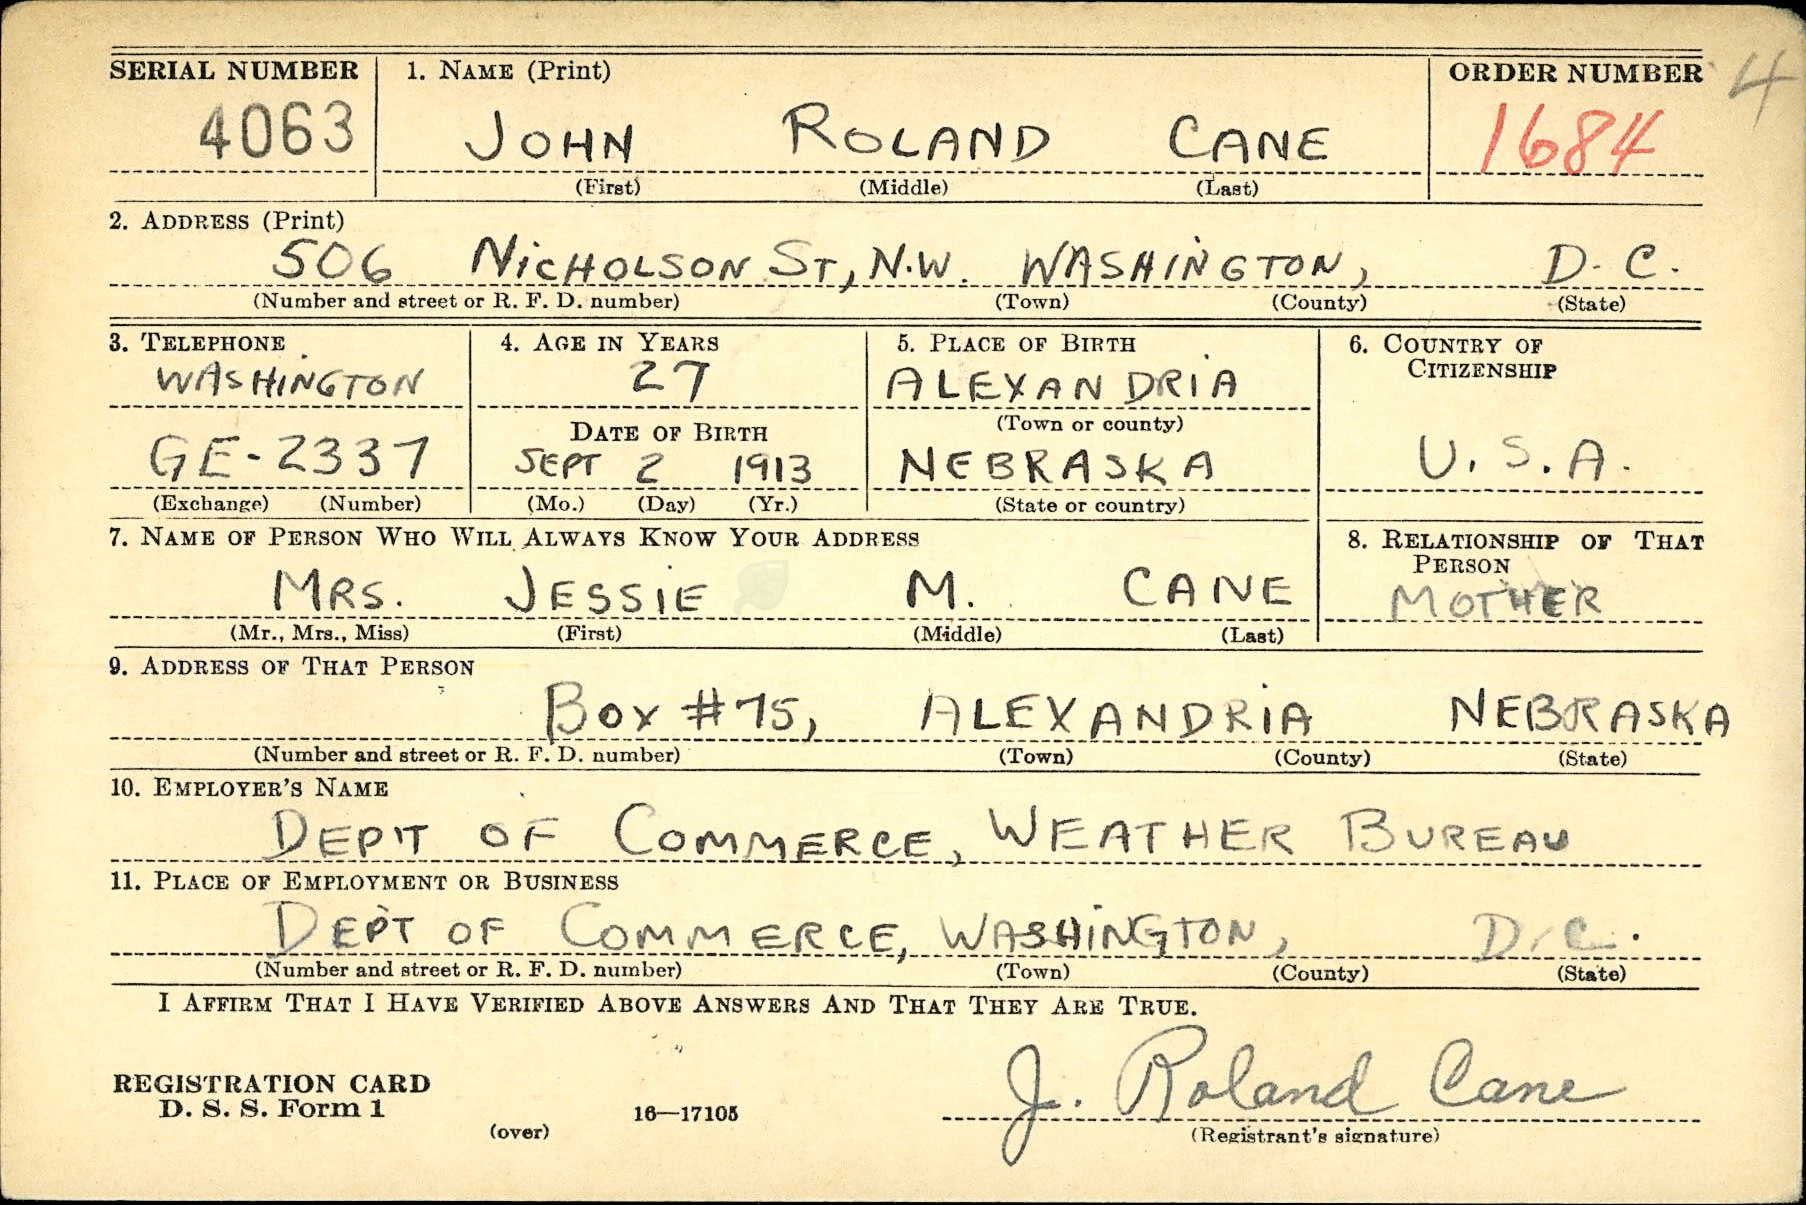 SERIAL NUMBER 1. NAME (Print) ORDER NUMBER 4
4063 JOHN ROLAND CANE 1684
(First) (Middle) (Last)
2. ADDRESS (Print)
506 NICHOLSON ST, N.W. WASHINGTON, D.C.
(Number and street or R. F. D. number) (Town) (County) (State)
3. TELEPHONE 4. AGE IN YEARS 5. PLACE OF BIRTH 6. COUNTRY OF
CITIZENSHIP
WASHINGTON 27 ALEXANDRIA
(Town or county)
DATE OF BIRTH
GE-2337 SEPT 2 1913 NEBRASKA U.S.A.
(Exchange) (Number) (Mo.) (Day) (Yr.) (State or country)
7. NAME OF PERSON WHO WILL ALWAYS KNOW YOUR ADDRESS 8. RELATIONSHIP OF THAT
PERSON
MRS. JESSIE M. CANE MOTHER
(Mr., Mrs., Miss) (First) (Middle) (Last)
9. ADDRESS OF THAT PERSON
BOX #75, ALEXANDRIA NEBRASKA
(Number and street or R. F. D. number) (Town) (County) (State)
10. EMPLOYER'S NAME
DEP'T OF COMMERCE, WEATHER BUREAU
11. PLACE OF EMPLOYMENT OR BUSINESS
DEPT OF COMMERCE, WASHINGTON, D.C.
(Number and street or R. F. D. number) (Town) (County) (State)
I AFFIRM THAT I HAVE VERIFIED ABOVE ANSWERS AND THAT THEY ARE TRUE.
J. Roland Cane
REGISTRATION CARD
D. S. S. Form 1 16—17105
(over) (Registrant's signature)